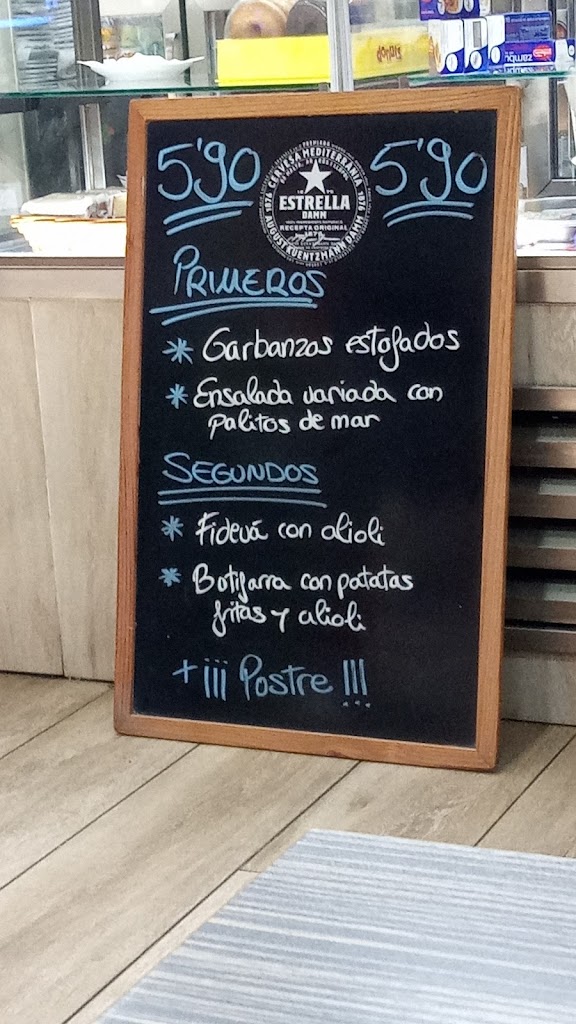 5'90
5'90
CERVESA MEDITERRÀNIA
1876
1876
ESTRELLA
DAMM
RECEPTA ORIGINAL
1876
AUGUST KUENTZMANN DAMM
PRIMEROS
* Garbanzos estofados
* Ensalada variada con
palitos de mar
SEGUNDOS
* Fidevá con alioli
* Botifarra con patatas
fritas y alioli
+ ¡¡¡ Postre !!!